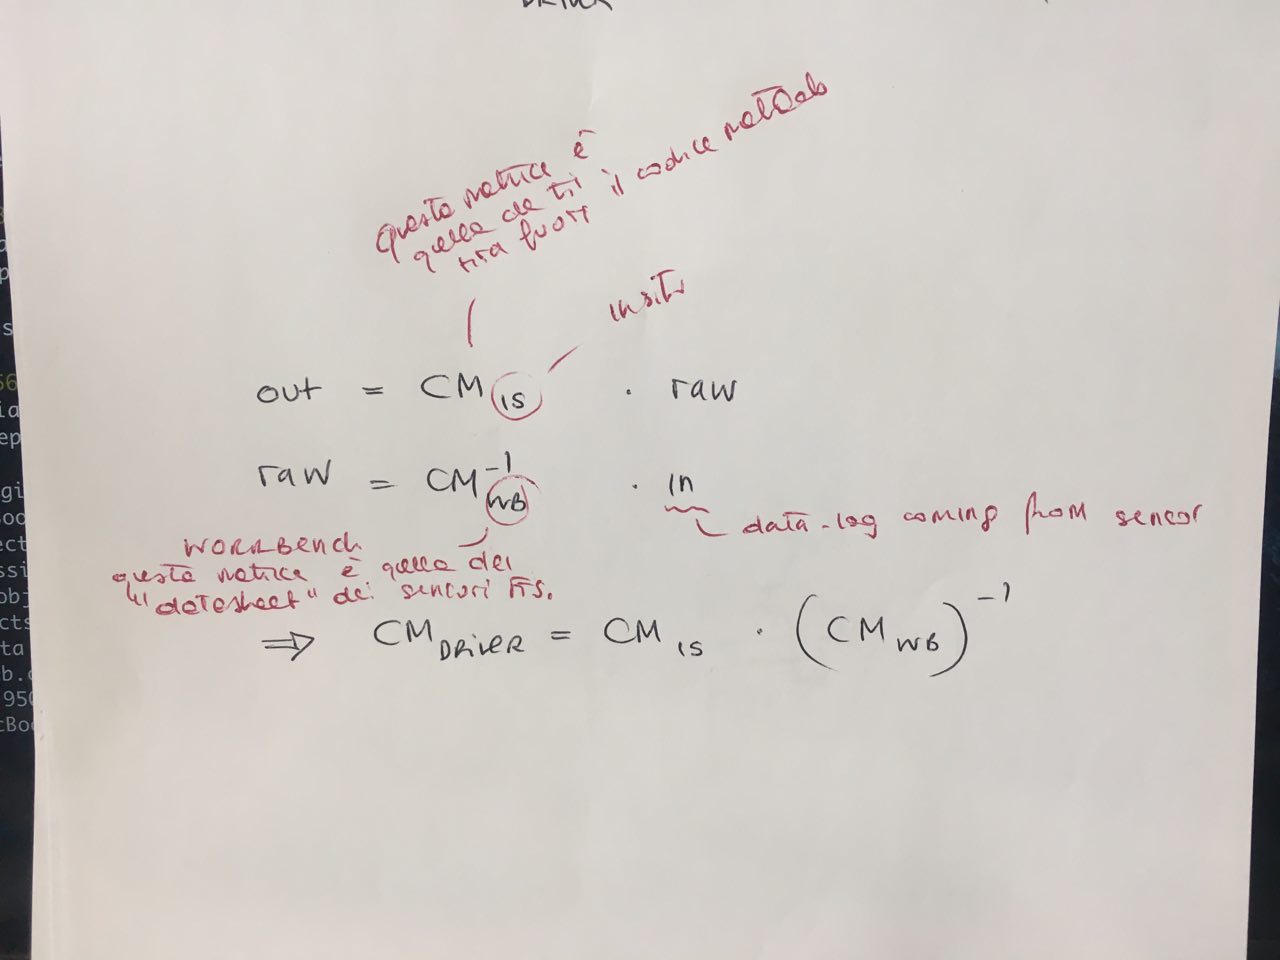 DRIVER
questa matrice è
quella che ti
tira fuori il codice matlab
insitu
out = CM IS · raw
raw = CM WB -1 · in
data-log coming from sensor
WORKBENCH
questa matrice è quella dei
"datasheet" dei sensori FTS.
⇒ CM DRIVER = CM IS · (CM WB) -1